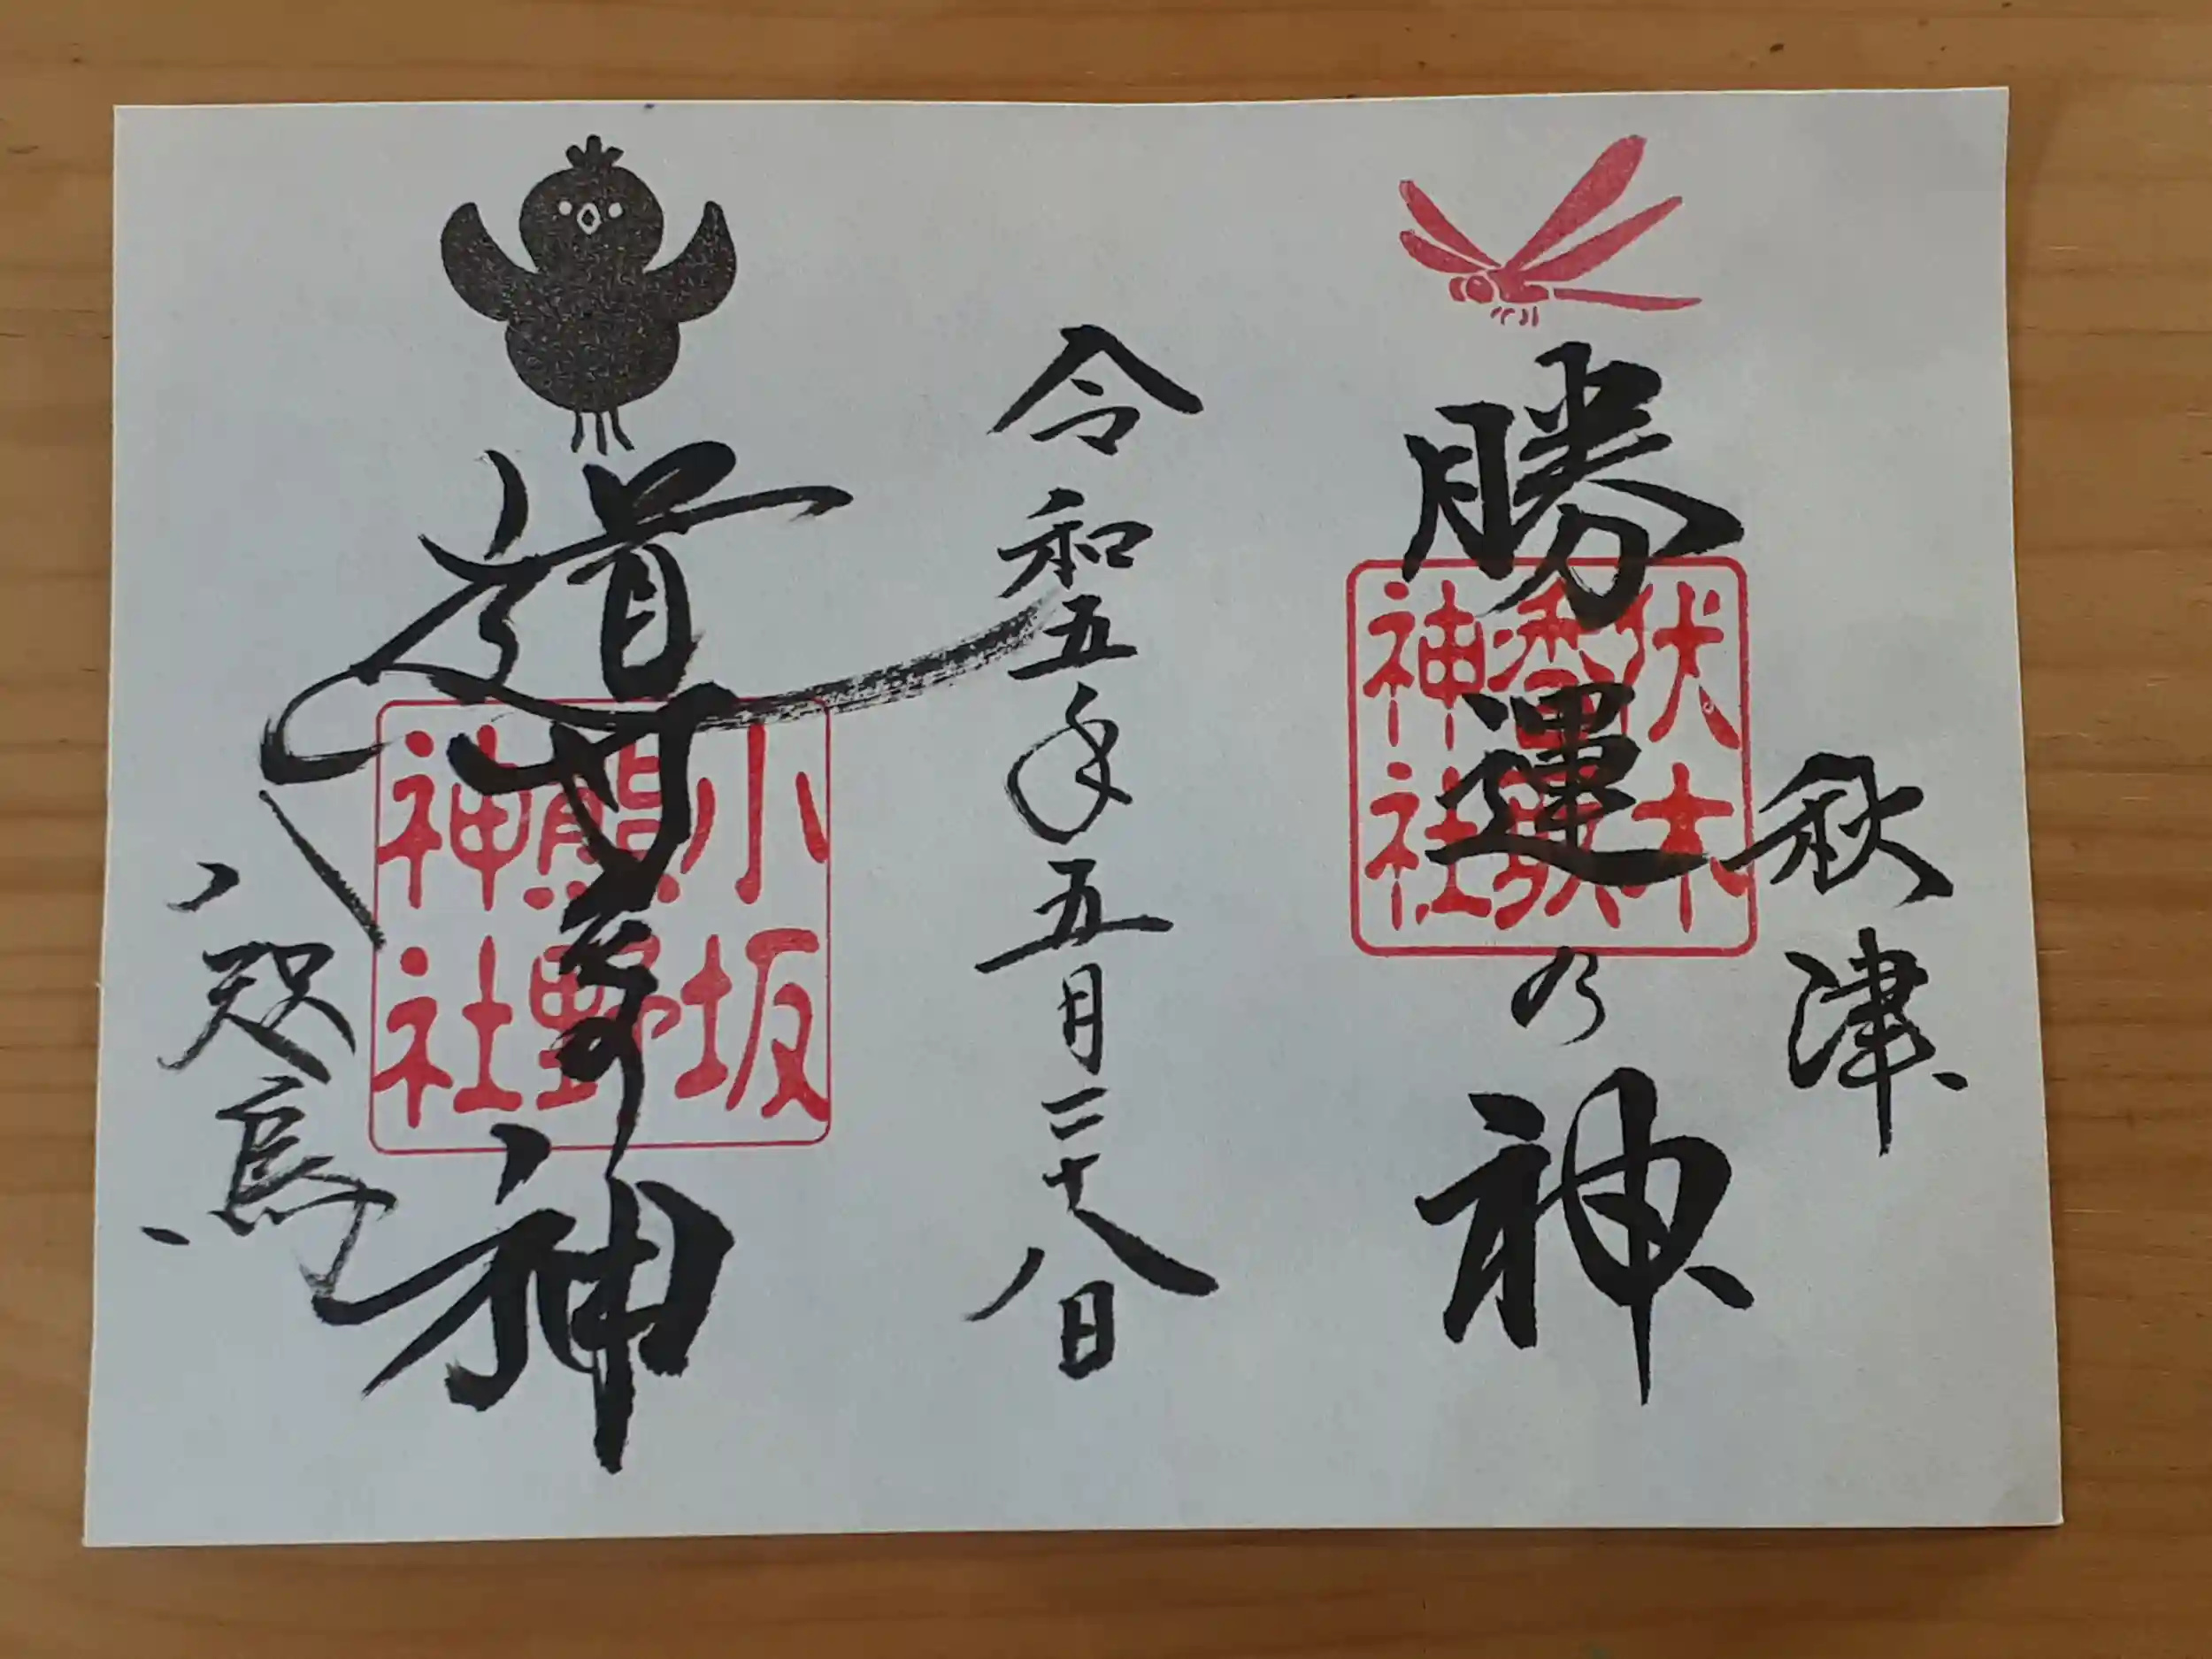 秋津
勝運乃神
伏木香取神社
令和五年五月二十八日
導きの神
小坂熊野神社
八咫烏